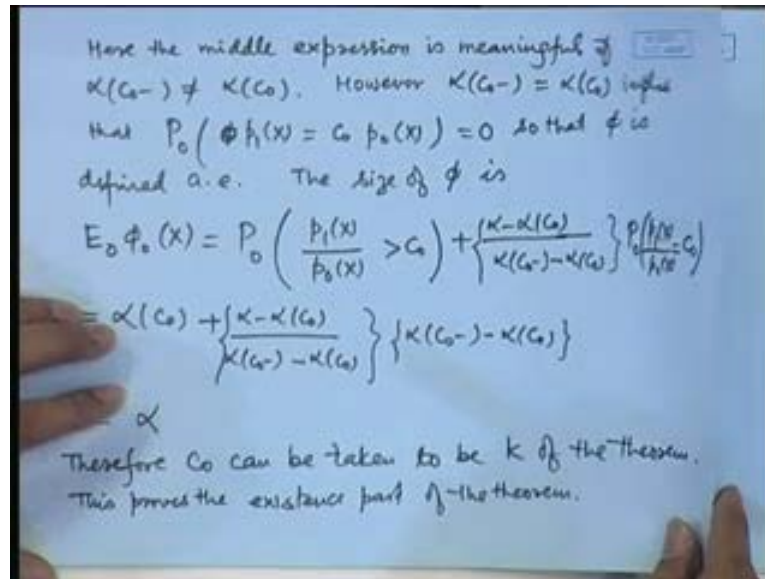 Here the middle expression is meaningful if
α(C₀-) ≠ α(C₀). However α(C₀-) = α(C₀) implies
that P₀( ϕ p₁(X) = C₀ p₀(X) ) = 0 so that ϕ is
defined a.e. The size of ϕ is
E₀ ϕ₀(X) = P₀( p₁(X)/p₀(X) > C₀ ) + { (α-α(C₀))/(α(C₀-)-α(C₀)) } P₀( p₁(X)/p₀(X) = C₀ )
= α(C₀) + { (α-α(C₀))/(α(C₀-)-α(C₀)) } { α(C₀-)-α(C₀) }
= α
Therefore C₀ can be taken to be k of the theorem.
This proves the existence part of the theorem.